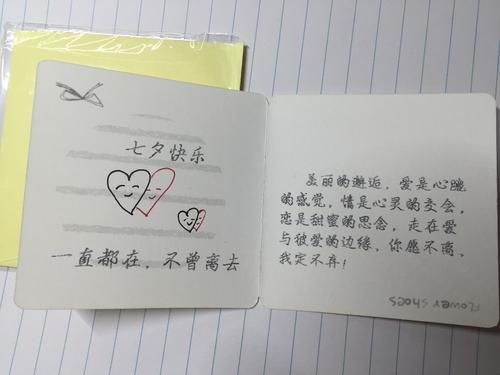 七夕快乐
一直都在，不曾离去
美丽的邂逅，爱是心跳
的感觉，情是心灵的交会，
恋是甜蜜的思念，走在爱
与被爱的边缘，你愿不离，
我定不弃！
FLOWER SHOES